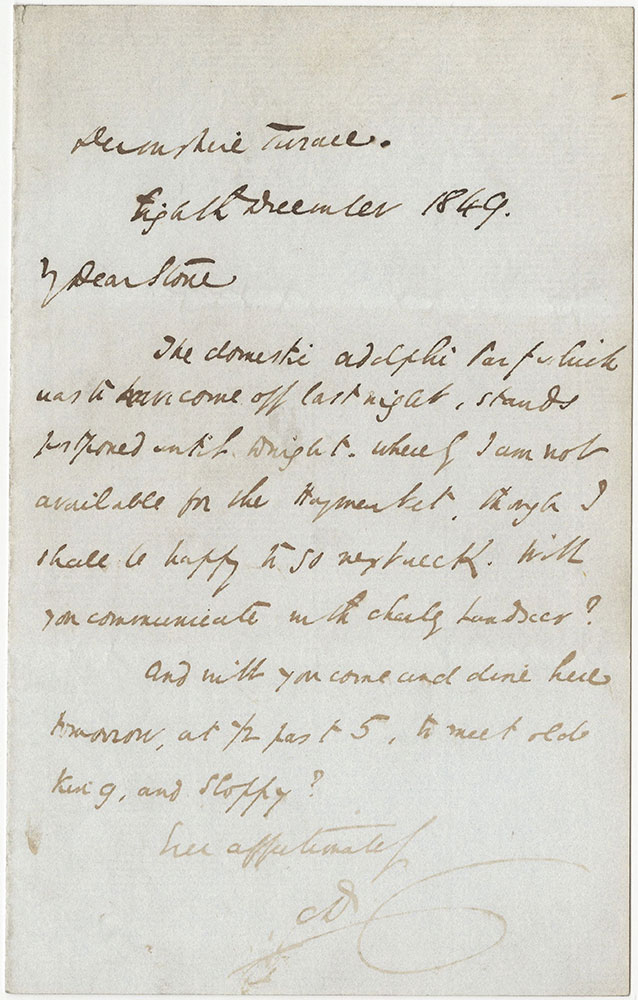 Devonshire Terrace.
Eighth December 1849.
My Dear Stone
The domestic Adelphi Party which
was to have come off last night, stands
postponed until tonight. Whereby I am not
available for the Haymarket, though I
shall be happy to go next week. Will
you communicate with Charley Landseer?
And will you come and dine here
tomorrow, at 1/2 past 5, to meet old
King, and Sloppy?
Ever affectionately
CD